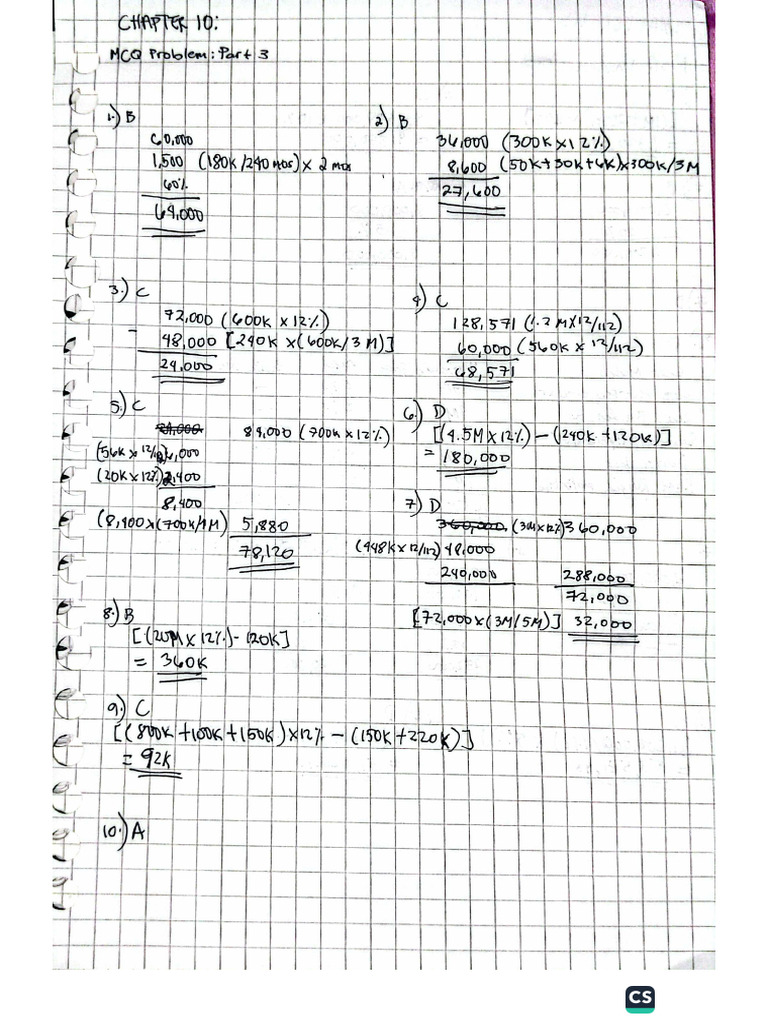 CHAPTER 10:
MCQ Problem: Part 3
1.) B
60,000
1,500 (180K/240 mos) x 2 mos
60%
64,000
2) B
36,000 (300K x 12%)
8,600 (50K+30K+6K) x 300K/3M
27,600
3.) C
72,000 (600K x 12%)
- 48,000 [240K x (600K/3M)]
24,000
4) C
128,571 (1.2M x 12/112)
60,000 (560K x 12/112)
68,571
5.) C
84,000 (700K x 12%)
(56K x 12/112) 6,000
(20K x 12%) 2,400
8,400
(8,400 x (700K/1M) 5,880
78,120
6.) D
[(4.5M x 12%) - (240K + 120K)]
= 180,000
7.) D
360,000 (3M x 12%) 360,000
(448K x 12/112) 48,000
240,000 288,000
72,000
[72,000 x (3M/5M)] 32,000
8.) B
[(20M x 12%) - 120K]
= 360K
9.) C
[(800K + 100K + 150K) x 12% - (150K + 220K)]
= 92K
10.) A
CS